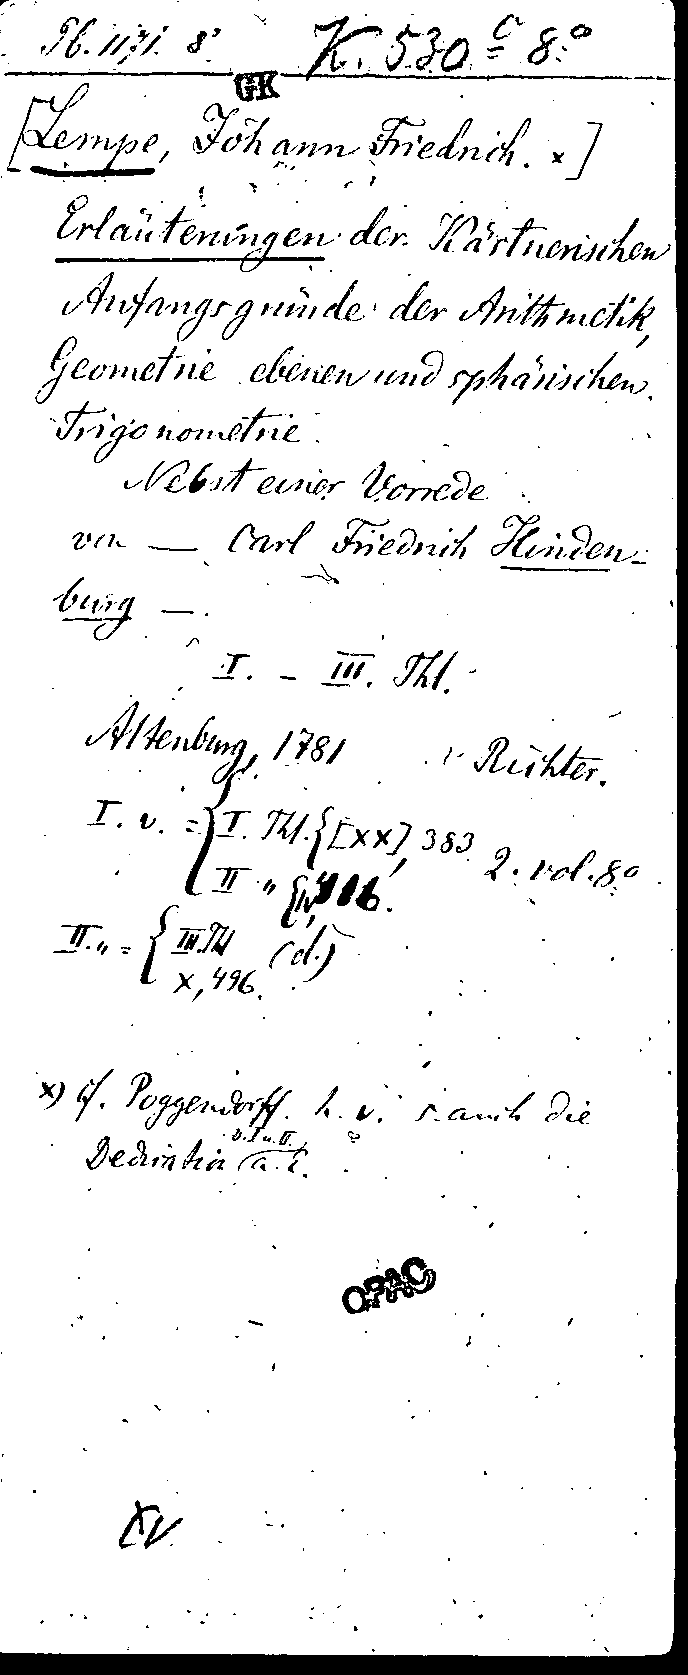 Pb. 1171. 8° K. 530 c 8.°
GK
[Lempe, Johann Friedrich. x]
Erläuterungen der Kärtnerischen
Anfangsgründe der Arithmetik,
Geometrie ebenen und sphärischen
Trigonometrie.
Nebst einer Vorrede
von — Carl Friedrich Hinden-
burg —.
I. – III. Thl.
Altenburg, 1781 Richter.
I. v. = { I. Thl. { [XX], 383
II „ 2. vol. 8°
II. „ = { III. Thl (d.)
X, 496.
x) cf. Poggendorff. h. v. s. auch die
v. I u. II.
Dedication a. E.
OPAC
XV